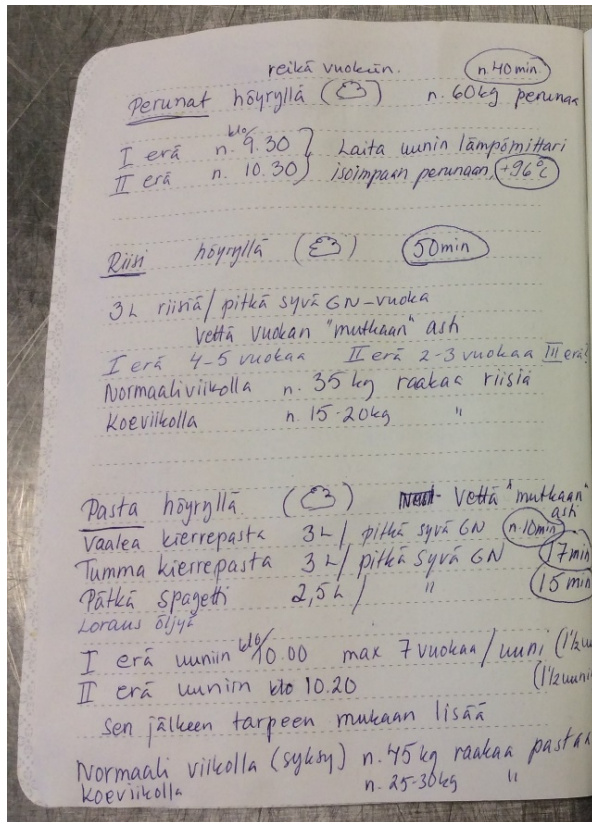 reikä vuokiin. n. 40 min.
Perunat höyryllä ( ) n. 60 kg perunaa
I erä n. klo 9.30 } Laita uunin lämpömittari
II erä n. 10.30 } isoimpaan perunaan, +96°C
Riisi höyryllä ( ) 50 min
3 L riisiä / pitkä syvä GN-vuoka
Vettä vuokan "mutkaan" asti
I erä 4-5 vuokaa II erä 2-3 vuokaa III erä!
Normaaliviikolla n. 35 kg raakaa riisiä
Koeviikolla n. 15-20 kg "
Pasta höyryllä ( ) Vettä "mutkaan"
asti
Vaalea kierrepasta 3 L / pitkä syvä GN n. 10 min
Tumma kierrepasta 3 L / pitkä syvä GN 17 min
Pätkä spagetti 2,5 L / " 15 min
Loraus öljyä
I erä uuniin klo 10.00 max 7 vuokaa / uuni (1½ uu
II erä uuniin klo 10.20 (1½ uuni
sen jälkeen tarpeen mukaan lisää
Normaali viikolla (syksy) n. 45 kg raakaa pastaa
Koeviikolla n. 25-30 kg "